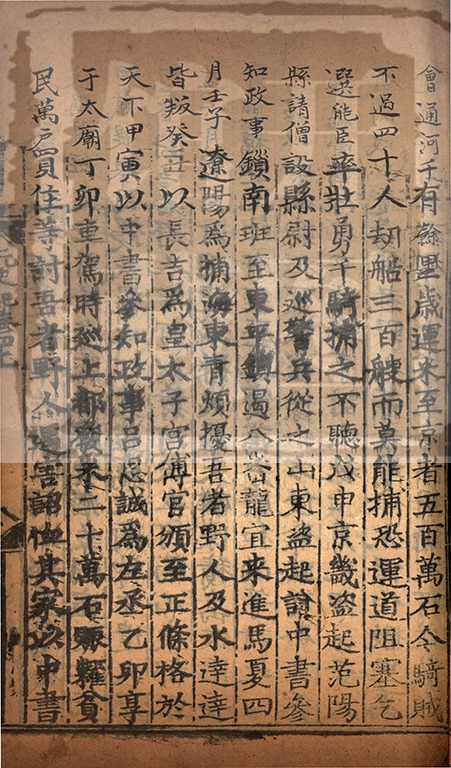 會通河千有餘里歲運米至京者五百萬石今騎賊
不過四十人刼船三百艘而莫能捕恐運道阻塞乞
選能臣率壯勇千騎捕之不聽戊申京畿盜起范陽
縣請僧設縣尉及巡警兵從之山東盜起詔中書參
知政事鎖南班至東平鎮遏八番龍宜来進馬夏四
月壬子遼陽爲捕海東青煩擾吾者野人及水達達
皆叛癸丑以長吉爲皇太子宮傅官頒至正條格於
天下甲寅以中書參知政事吕思誠爲左丞乙卯享
于太廟丁卯車駕時巡上都發米二十萬石賑糶貧
民萬户買住等討吾者野人遇害詔恤其家以中書